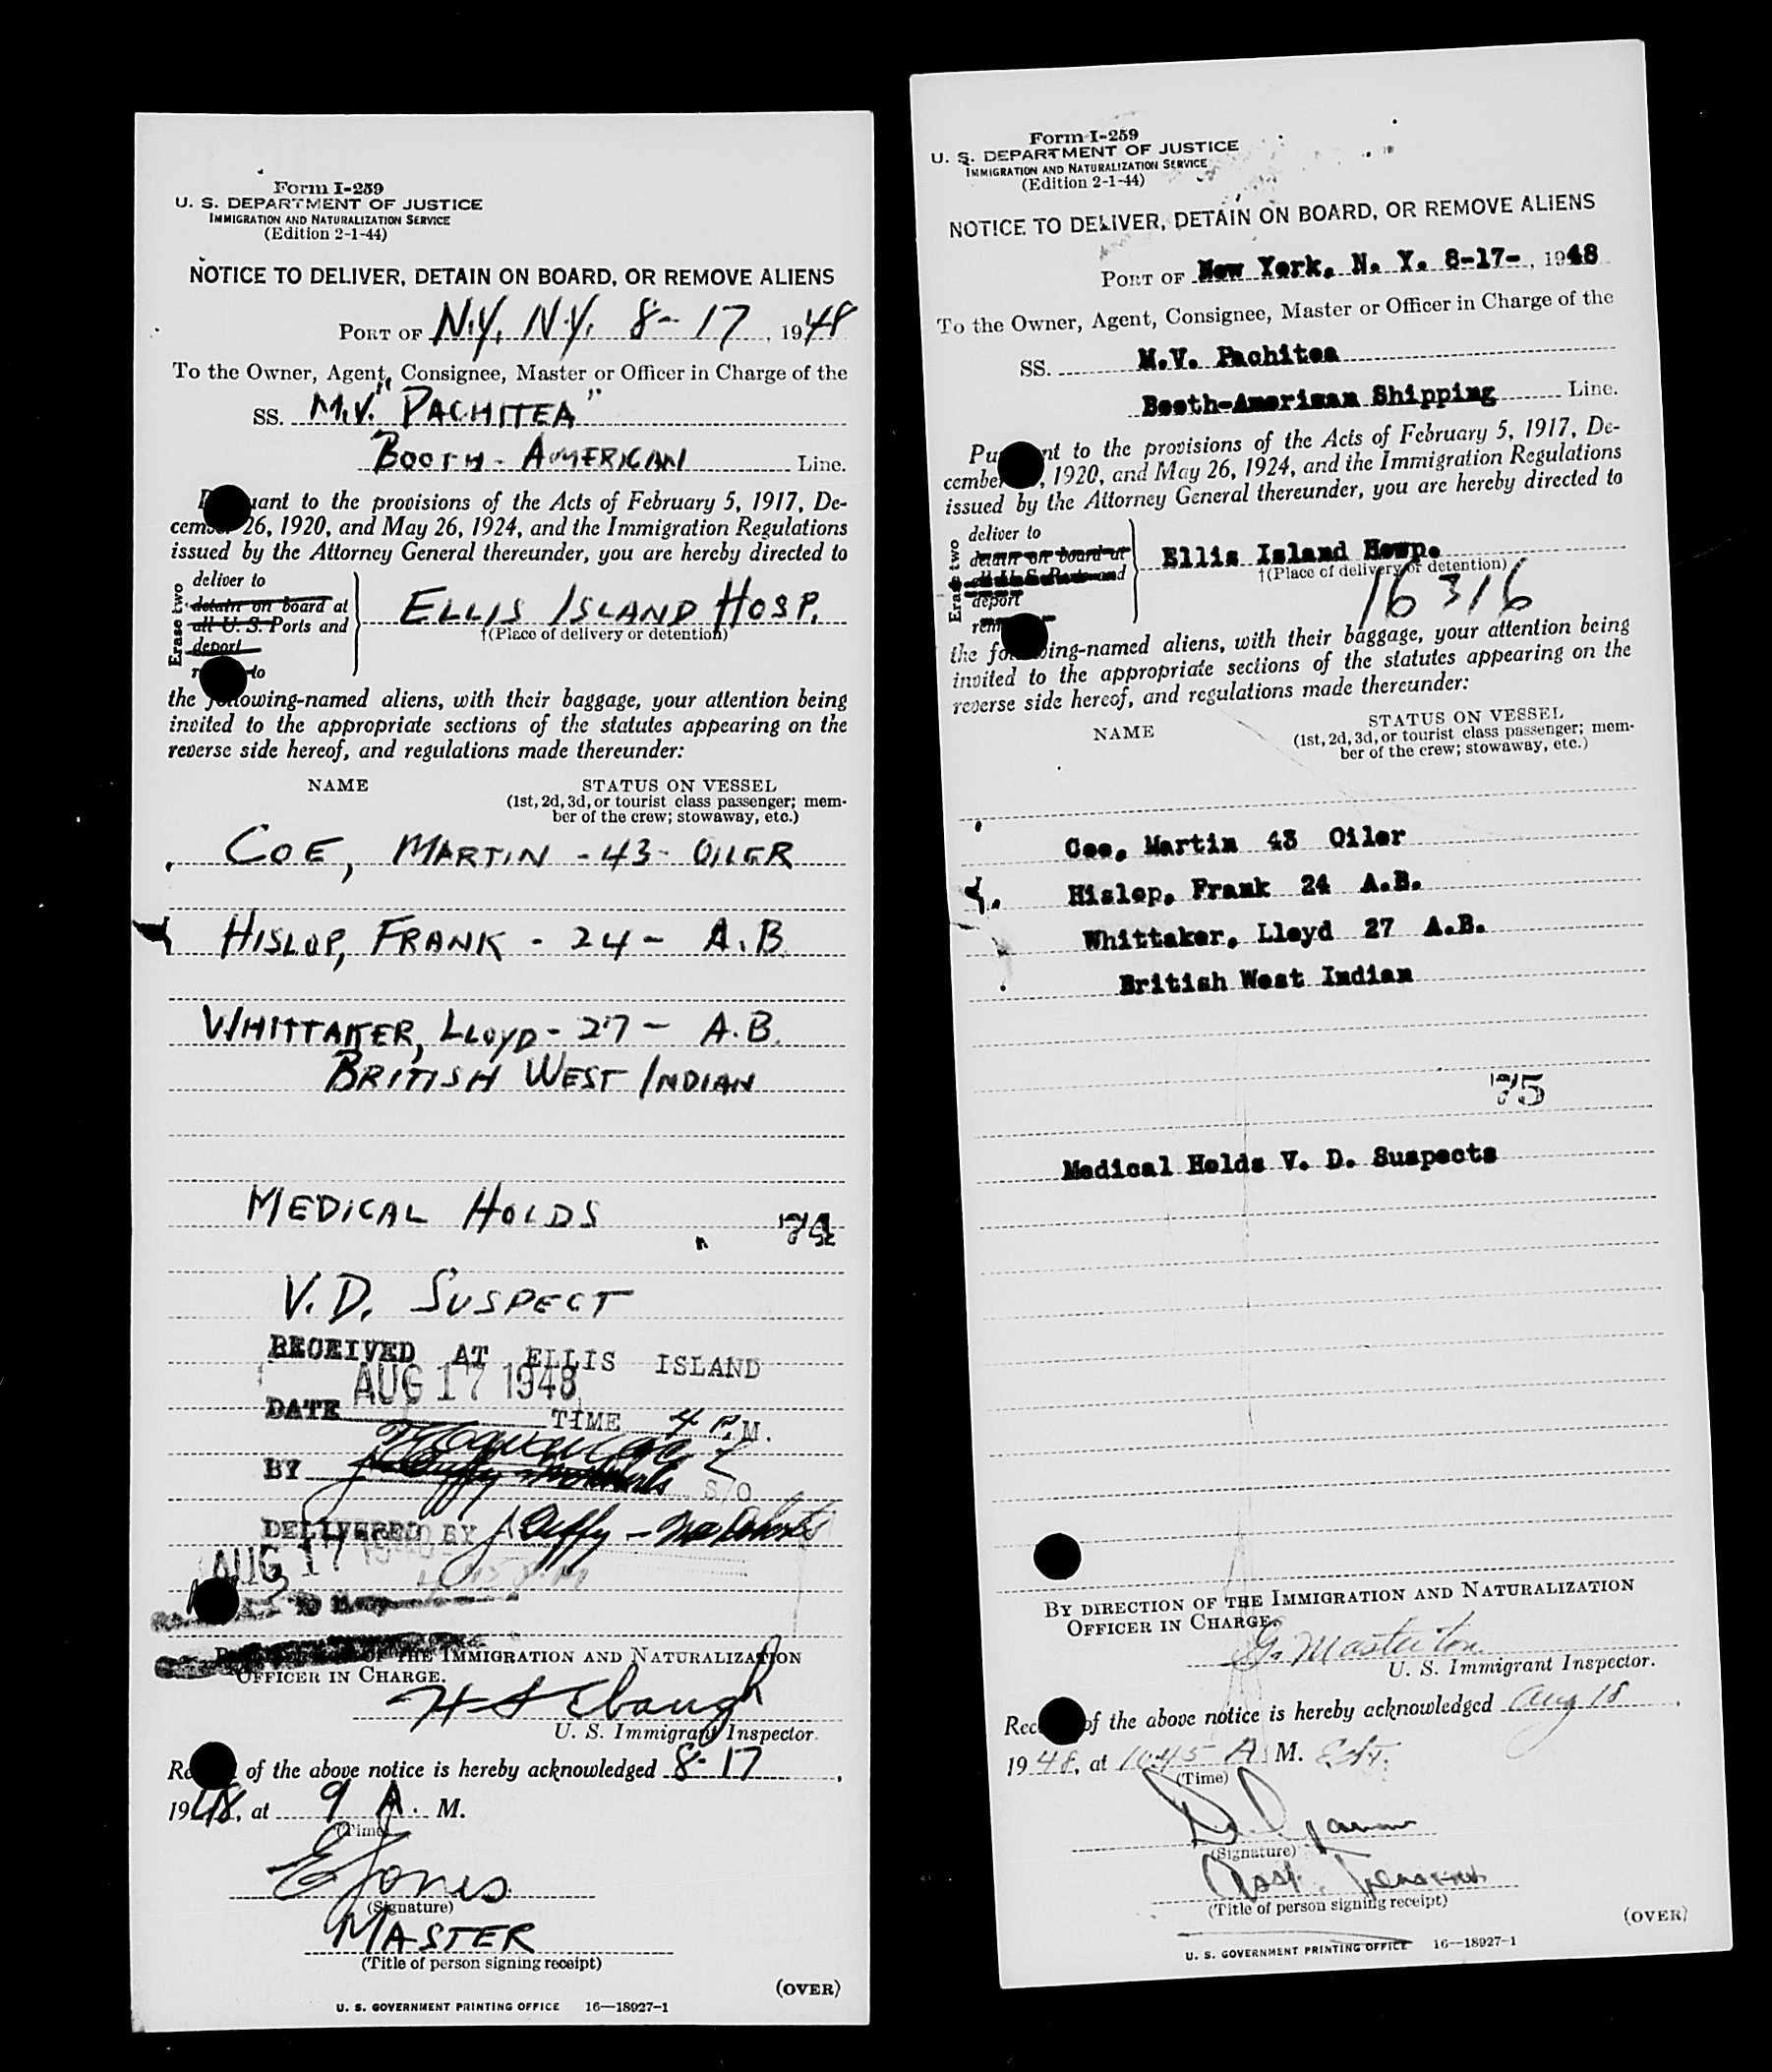 Form I-259
U. S. DEPARTMENT OF JUSTICE
IMMIGRATION AND NATURALIZATION SERVICE
(Edition 2-1-44)
NOTICE TO DELIVER, DETAIN ON BOARD, OR REMOVE ALIENS
PORT OF N.Y. N.Y. 8-17, 1948
To the Owner, Agent, Consignee, Master or Officer in Charge of the
SS. M.V. "PACHITEA"
BOOTH-AMERICAN Line.
uant to the provisions of the Acts of February 5, 1917, De-
cember 26, 1920, and May 26, 1924, and the Immigration Regulations
issued by the Attorney General thereunder, you are hereby directed to
Erase two
deliver to
detain on board at
all U. S. Ports and
deport
to
ELLIS ISLAND HOSP.
†(Place of delivery or detention)
the following-named aliens, with their baggage, your attention being
invited to the appropriate sections of the statutes appearing on the
reverse side hereof, and regulations made thereunder:
NAME STATUS ON VESSEL
(1st, 2d, 3d, or tourist class passenger; mem-
ber of the crew; stowaway, etc.)
COE, MARTIN - 43 - OILER
HISLOP, FRANK - 24 - A.B.
WHITTAKER, LLOYD - 27 - A.B.
BRITISH WEST INDIAN
MEDICAL HOLDS
74
V.D. SUSPECT
RECEIVED AT ELLIS ISLAND
AUG 17 1948
DATE TIME 4 P.M.
BY S/O
DELIVERED BY J Duffy -
AUG 17
OF THE IMMIGRATION AND NATURALIZATION
OFFICER IN CHARGE.
U. S. Immigrant Inspector.
of the above notice is hereby acknowledged 8-17,
1948, at 9 A. M.
(Time)
E Jones
(Signature)
MASTER
(Title of person signing receipt)
(OVER)
U. S. GOVERNMENT PRINTING OFFICE 16—18927-1
Form I-259
U. S. DEPARTMENT OF JUSTICE
IMMIGRATION AND NATURALIZATION SERVICE
(Edition 2-1-44)
NOTICE TO DELIVER, DETAIN ON BOARD, OR REMOVE ALIENS
PORT OF New York, N. Y. 8-17-, 1948
To the Owner, Agent, Consignee, Master or Officer in Charge of the
SS. M.V. Pachitea
Booth-American Shipping Line.
Pu nt to the provisions of the Acts of February 5, 1917, De-
cember , 1920, and May 26, 1924, and the Immigration Regulations
issued by the Attorney General thereunder, you are hereby directed to
Erase two
deliver to
detain on board at
all U. S. Ports and
deport
Ellis Island Hosp.
†(Place of delivery or detention)
16316
the following-named aliens, with their baggage, your attention being
invited to the appropriate sections of the statutes appearing on the
reverse side hereof, and regulations made thereunder:
NAME STATUS ON VESSEL
(1st, 2d, 3d, or tourist class passenger; mem-
ber of the crew; stowaway, etc.)
Coe, Martin 43 Oiler
Hislop, Frank 24 A.B.
Whittaker, Lloyd 27 A.B.
British West Indian
75
Medical Holds V. D. Suspects
BY DIRECTION OF THE IMMIGRATION AND NATURALIZATION
OFFICER IN CHARGE.
G. Masterton
U. S. Immigrant Inspector.
Rec of the above notice is hereby acknowledged Aug 18,
1948, at 10:45 A. M.
(Time)
(Signature)
(Title of person signing receipt)
(OVER)
U. S. GOVERNMENT PRINTING OFFICE 16—18927-1